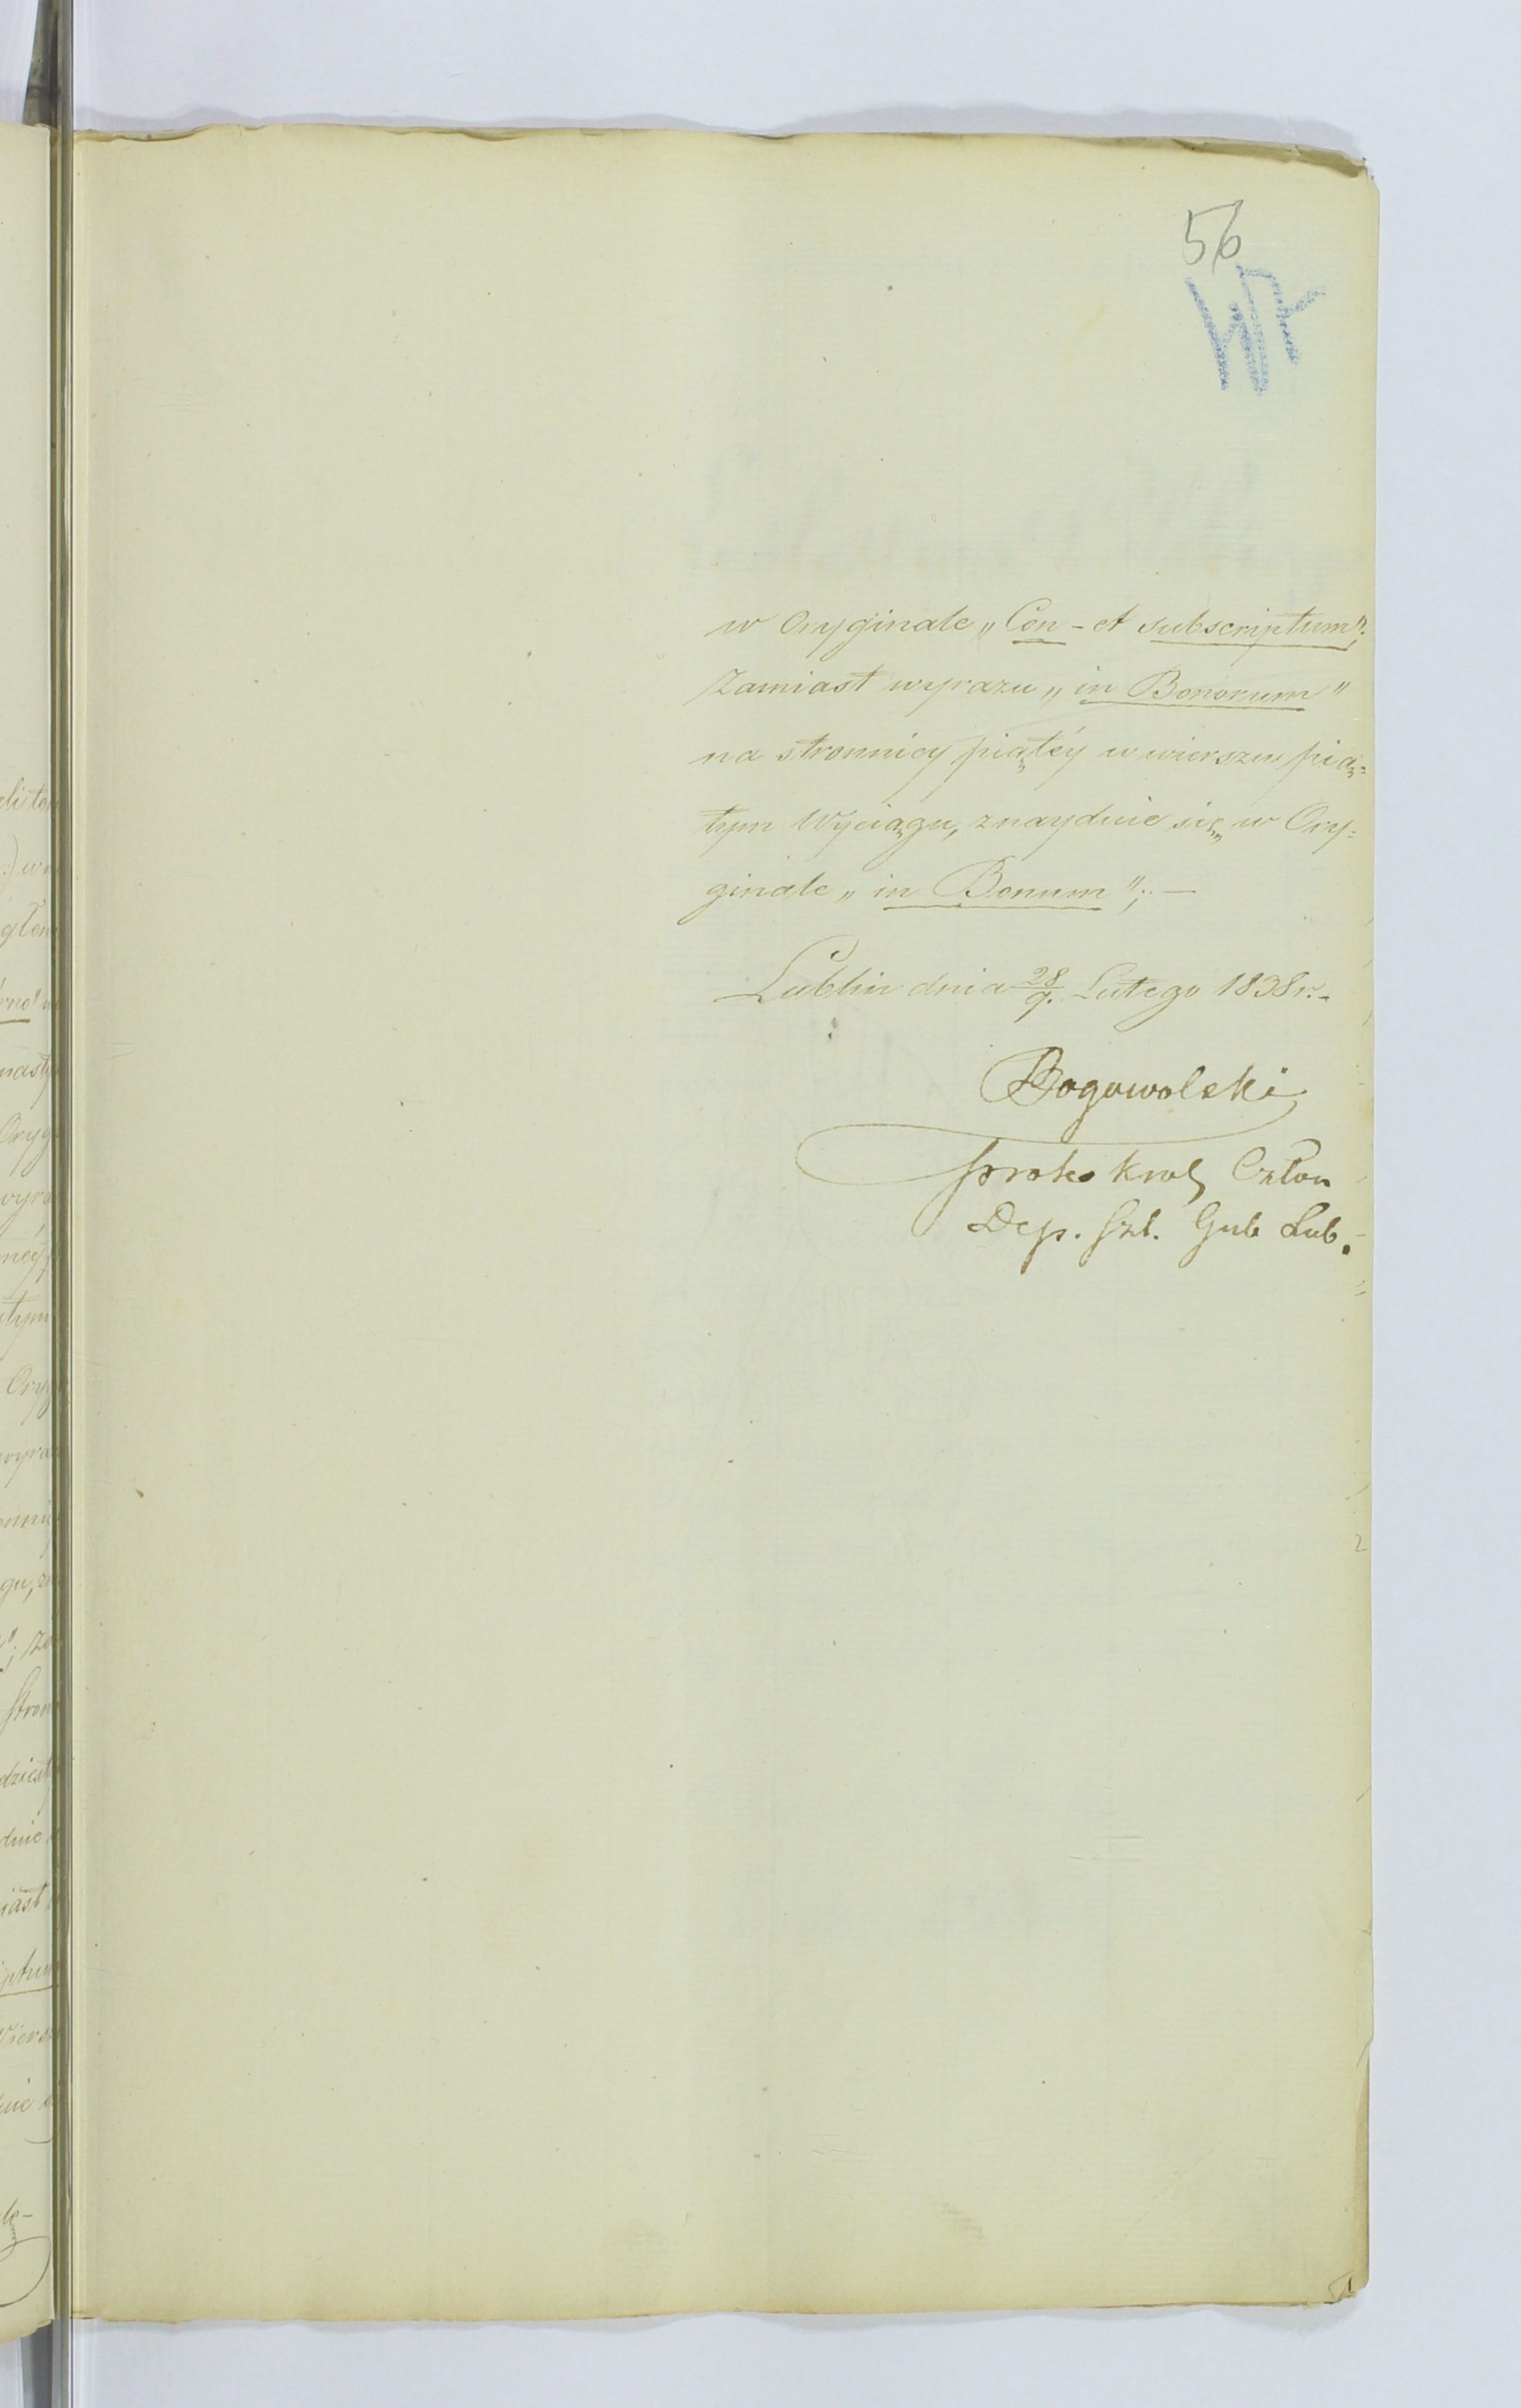 56
w Oryginale „Con - et subscriptum";
Zamiast wyrazu „in Bonorum"
na stronnicy piątéy w wierszu pią=
tym Wyciągu, znayduie się w Ory=
ginale „in Bonum"; —
Lublin dnia 28/9. Lutego 1838 r. -
Bogowolski
Człon
Dep. Szl. Gub Lub.